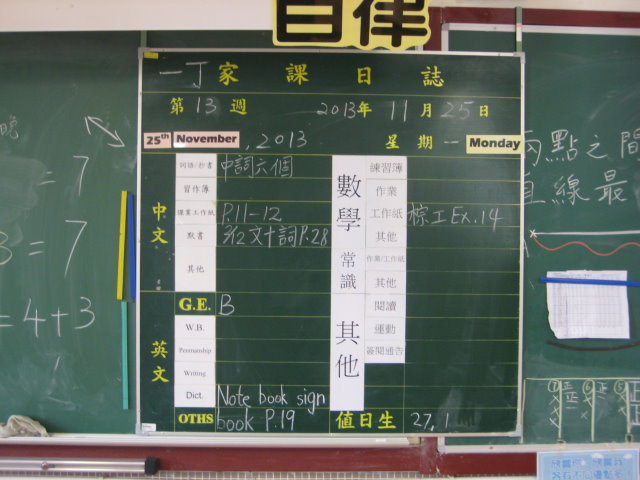 自律
一丁家課日誌
第13週 2013年11月25日
25th November, 2013 星期一 Monday
中文
詞語/抄書 中詞六個
習作簿
課業工作紙 P.11-12
默書 P.28
其他
英文
G.E. B
W.B.
Penmanship
Writing
Dict. Note book sign
OTHS book P.19
數學
練習簿
作業
工作紙 綜工Ex.14
其他
常識
作業/工作紙
其他
其他
閱讀
運動
簽閱通告
值日生 27, 1
= 7
3 = 7
= 4 + 3
兩點之間
直線最